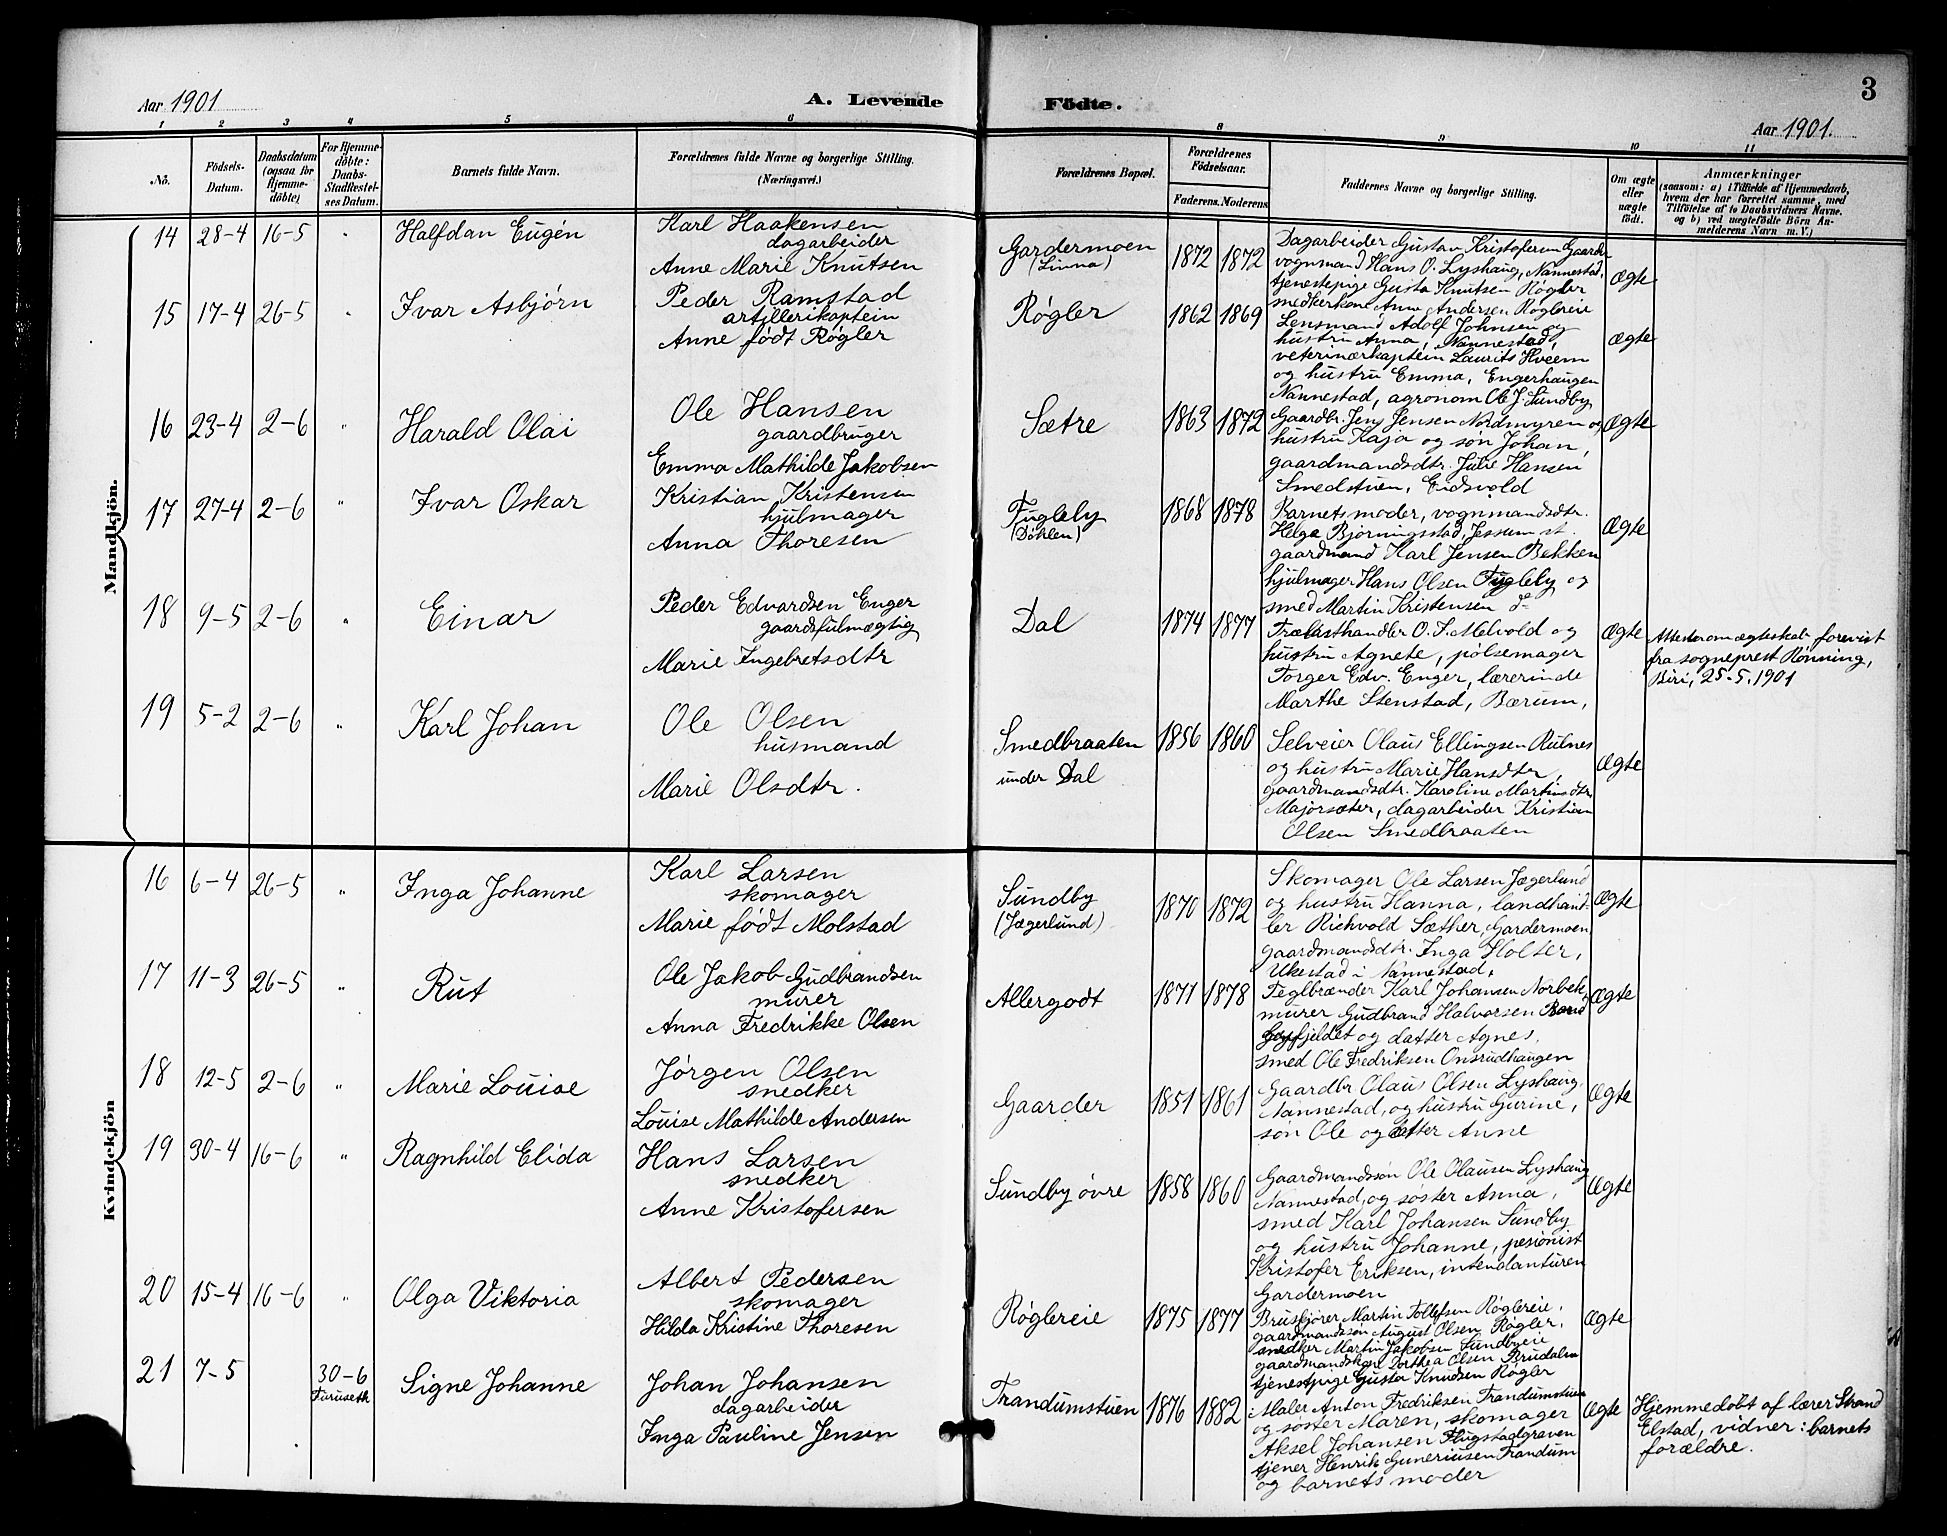 Aar 1901
A. Levende
1 2 3 4 5 6
No.
Födsels-Datum.
Daabsdatum (ogsaa for Hjemmedöbte)
For Hjemmedöbte: Daabs-Stadfæstelses Datum.
Barnets fulde Navn.
Forældrenes fulde Navne og borgerlige Stilling.
(Næringsvei.)
Mandkjön.
14 28-4 16-5 " Halfdan Eugén Karl Haakensen
dagarbeider
Anne Marie Knutsen
15 17-4 26-5 " Ivar Asbjørn Peder Ramstad
artillerikaptein
Anne født Røgler
16 23-4 2-6 " Harald Olai Ole Hansen
gaardbruger
Emma Mathilde Jakobsen
17 27-4 2-6 " Ivar Oskar Kristian Kristensen
hjulmager
Anna Thoresen
18 9-5 2-6 " Einar Peder Edvardsen Enger
gaardsfulmægtig
Marie Ingebretsdtr
19 5-2 2-6 " Karl Johan Ole Olsen
husmand
Marie Olsdtr.
Kvindekjön
16 6-4 26-5 " Inga Johanne Karl Larsen
skomager
Marie født Molstad
17 11-3 26-5 " Rut Ole Jakob Gudbrandsen
murer
Anna Fredrikke Olsen
18 12-5 2-6 " Marie Louise Jørgen Olsen
snedker
Louise Mathilde Andersen
19 30-4 16-6 " Ragnhild Elida Hans Larsen
snedker
Anne Kristofersen
20 15-4 16-6 " Olga Viktoria Albert Pedersen
skomager
Hilda Kristine Thoresen
21 7-5 30-6 Signe Johanne Johan Johansen
Furuseth dagarbeider
Inga Pauline Jensen
Födte.
3
Aar 1901.
8 9 10 11
Forældrenes Bopæl.
Forældrenes Födselsaar.
Faderens. Moderens.
Faddernes Navne og borgerlige Stilling.
Om ægte eller uægte födt.
Anmærkninger
(saasom: a) i Tilfælde af Hjemmedaab,
hvem der har forrettet samme, med
Tilföielse af to Daabsvidners Navne.
og b) ved uægtefödte Börn An-
melderens Navn m. V.)
Gardermoen (Linna) 1872 1872 Ægte
Dagarbeider Gustav Kristofersen Gaarder
vognmand Hans O. Lyshaug, Nannestad,
tjenestepige Gusta Knutsen Røgler
snedkerkone Anne Andersen Røglereie
Røgler 1862 1869 Ægte
Lensmand Adolf Johnsen og
hustru Anna, Nannestad,
veterinærkaptein Laurits Hveem
og hustru Emma, Engerhaugen
Nannestad, agronom Ole J. Sundby
Sætre 1863 1872 Ægte
Gaardbr. Jens Jensen Nordmyren og
hustru Kaja og søn Johan,
gaardmandsdtr. Julie Hansen
Smedstuen, Eidsvold
Fugleby (Døhlen) 1868 1878 Ægte
Barnets moder, vognmandsdtr.
Helga Bjørningstad, Jessum st
gaardmand Karl Jensen Bekken
hjulmager Hans Olsen Fugleby og
smed Martin Kristensen
Dal 1874 1877 Ægte
Trælasthandler O. J. Melvold og
hustru Agnete, pølsemager
Torger Edv. Enger, lærerinde
Marthe Stenstad, Bærum,
Attest om ægteskab forevist
fra sogneprest Rønning,
Biri, 25-5.1901
Smedbraaten
under Dal 1856 1860 Ægte
Selveier Olaus Ellingsen Rulnes
og hustru Marie Hansdtr,
gaardmandsdtr. Karoline Martinsdtr
Majorsæter, dagarbeider Kristian
Olsen Smedbraaten
Sundby
(Jægerlund) 1870 1872 Ægte
Skomager Ole Larsen Jægerlund
og hustru Hanna, landhand-
ler Richvold Sæther, Gardermoen
gaardmandsdtr. Inga Holter,
Ukestad i Nannestad,
Allergodt 1871 1878 Ægte
Teglbrænder Karl Johansen Norbek,
murer Gudbrand Halvorsen
og datter Agnes,
smed Ole Fredriksen Onsrudhaugen
Gaarder 1851 1861 Ægte
Gaardbr Olaus Olsen Lyshaug
Nannestad, og hustru Gurine,
søn Ole og datter Anne
Sundby øvre 1858 1860 Ægte
Gaardmandssøn Ole Olausen Lyshaug
Nannestad, og søster Anna,
smed Karl Johansen Sundby
og hustru Johanne, pesionist
Kristofer Eriksen, intendanturen
Gardermoen
Røglereie 1875 1877 Ægte
Bruskjører Martin Tollefsen Røglereie,
gaardmandssøn August Olsen Røgler,
snedker Martin Jakobsen Sundbyeie
gaardmandskone Dorthea Olsen Brudalen
tjenestpige Gusta Knudsen Røgler
Trandumstuen 1876 1882 Ægte
Maler Anton Fredriksen Trandumstuen
og søster Maren, skomager
Aksel Johansen Flugstadgraven
tjener Henrik Guneriussen Trandum
og barnets moder
Hjemmedøbt af lærer Strand
Elstad, vidner: barnets
forældre.